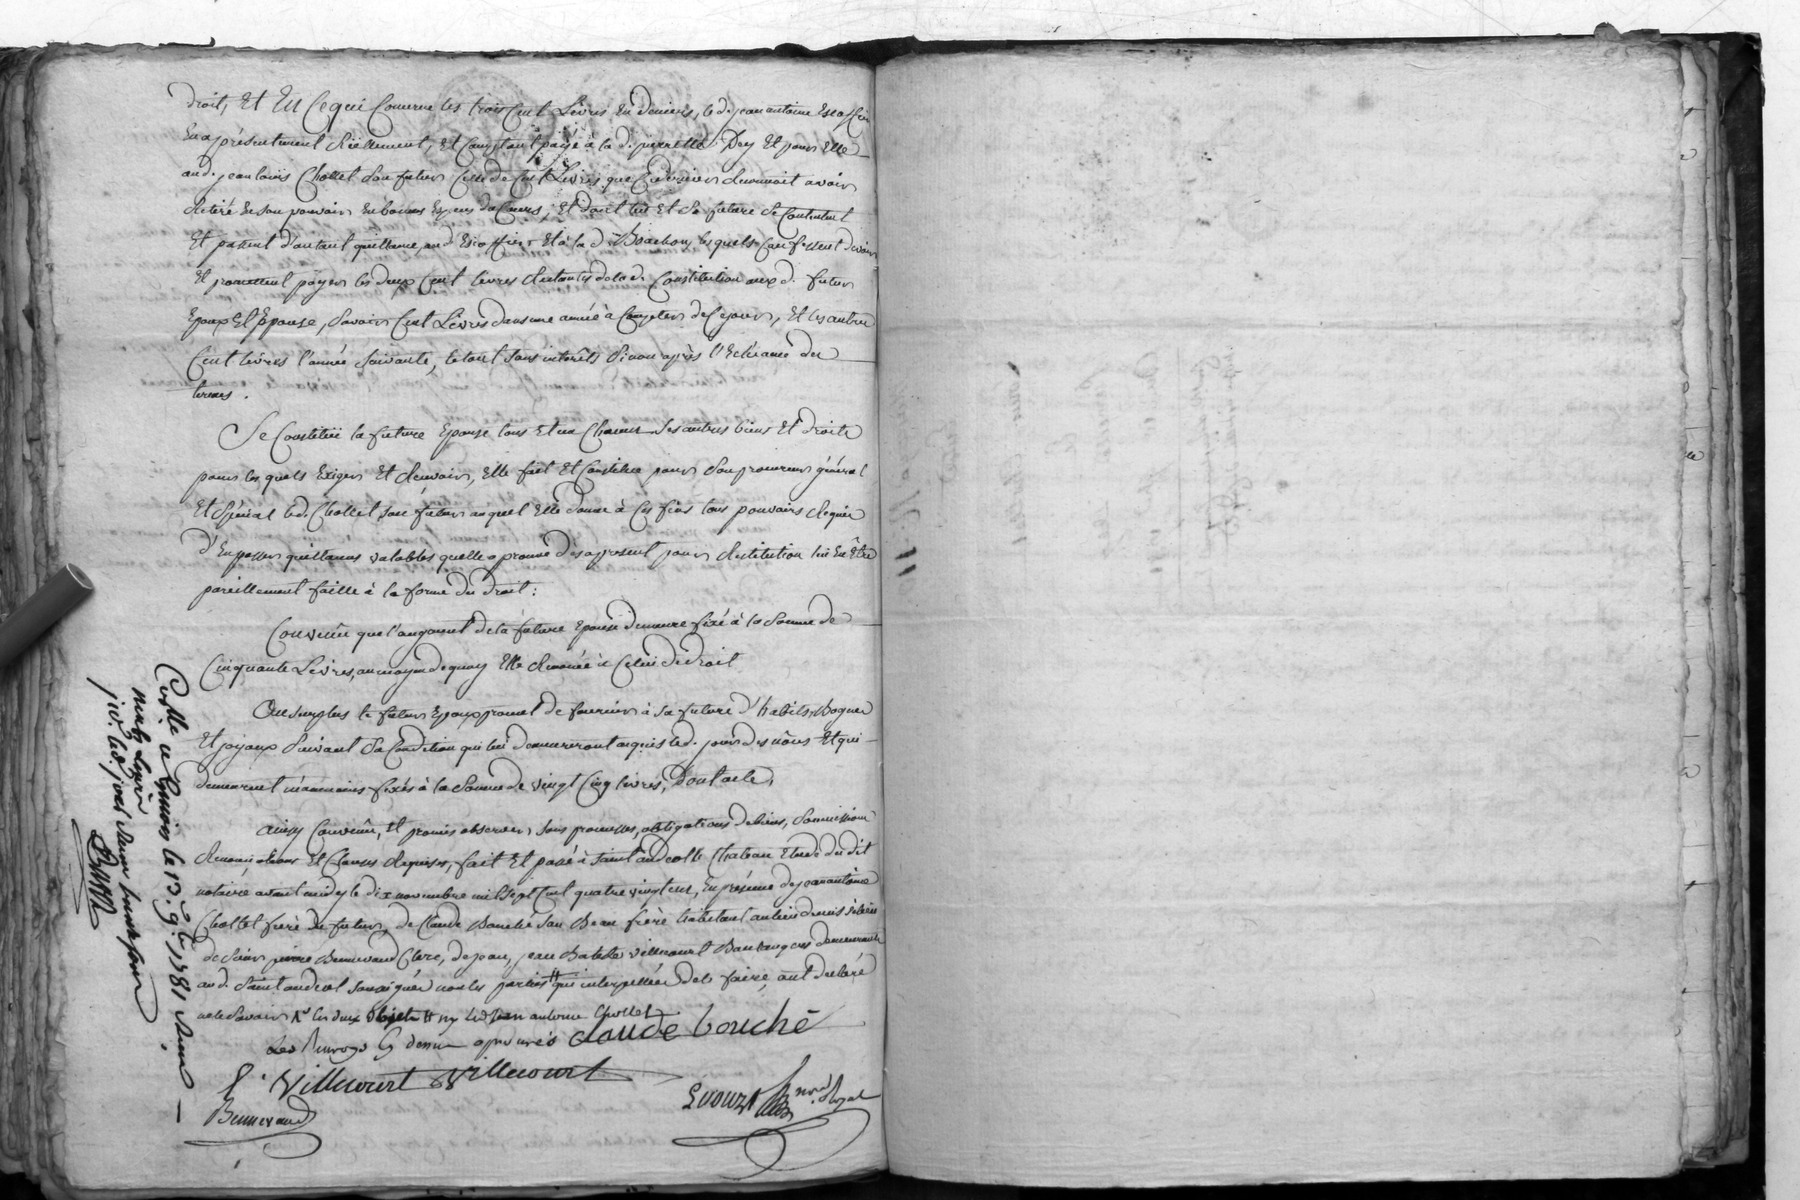 droit, Et En Ce qui Concerne les trois Cent Livres En deniers, le d. jean antoine Escoffier
En a présentement Réellement, Et Comptant payé à la d. pierrette Dey Et pour Elle
au d. jean louis Chollet son futur Celle de Cent Livres que Ce dernier Reconnoit avoir
Retiré En son pouvoir En bonnes Espèces du Cours, Et dont lui Et Sa future Se Contentent
Et passent d'autant quittance, au d. Escoffier Et à la d. Bonchon, lesquels Confessent devoir
Et promettent payer les deux Cent livres Restantes de la d. Constitution aux d. futur
Epoux Et Epouse, Savoir Cent Livres dans une année à Compter de Ce jour, Et les autres
Cent livres l'année Suivante, le tout sans intérêts Sinon après l'Echéance des
termes.
Se Constitue la future Epouse tous Et un Chacun Ses autres biens Et droits
pour lesquels Exiger Et Recevoir, Elle fait Et Constitue pour Son procureur général
Et Spécial led. Chollet son futur auquel Elle donne à Ces fins tous pouvoirs Requis
d'En passer quittances valables quelle aprouve dès apresent pour Restitution lui En Être
pareillement faitte à la forme du droit:
Convenu que l'augment de la future Epouse demeure fixé à la Somme de
Cinquante Livres, au moyen de quoy Elle Renonce à Celui de droit
Au surplus le futur Epoux promet de fournir à sa future d'habits, Bagues
Et joyaux Suivant Sa Condition qui lui demeureront acquis led. jour des nôces Et qui
demeurent néanmoins fixés à la Somme de vingt Cinq livres, Dont acte,
Ainsy Convenu, Et promis observer, sous promesses, obligations de biens, Soumissions
Renonciations Et Clauses Requises, fait Et passé à Saint andeol le Chateau Etude du dit
notaire avant midy le dix novembre mil Sept Cent quatre vingt un, En présence de jean antoine
Chollet frère du futur, de Claude Bouché Son Beau frère habitant au lieu de
de Sieur pierre Bennevaud Clerc, de jean, jean Batiste Villecourt Boulangers demeurants
au d. Saint andeol Soussignés non les parties qui interpellées de le faire, ont declaré
ne le Savoir les deux ny led. jean antoine Chollet
Les Renvoys Cy dessus aprouvés Claude bouché
J. Villecourt Villecourt
Bennevaud
not. Royal
Con.lle à Givors le 13. 9.bre 1781 Reçu